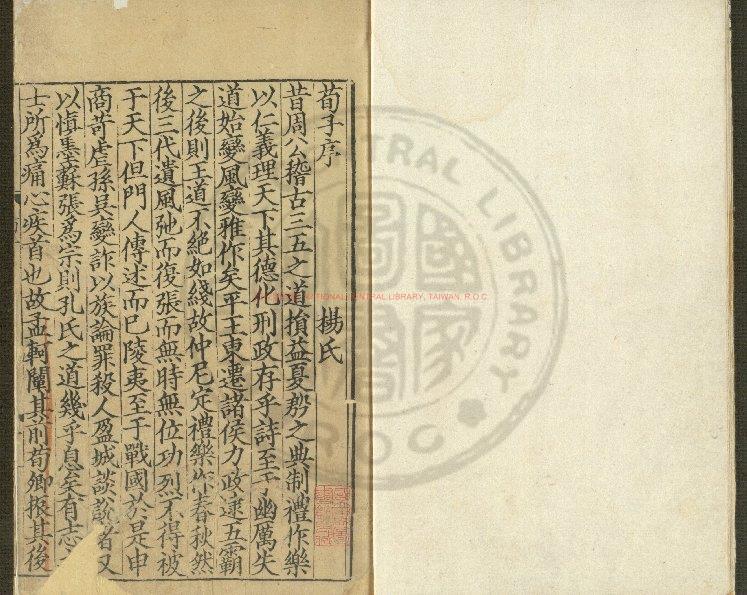 荀子序
楊氏
昔周公稽古三五之道損益夏殷之典制禮作樂
以仁義理天下其德化刑政存乎詩至于幽厲失
道始變風變雅作矣平王東遷諸侯力政逮五霸
之後則王道不絕如綫故仲尼定禮樂作春秋然
後三代遺風弛而復張而無時無位功烈不得被
于天下但門人傳述而已陵夷至于戰國於是申
商苛虐孫吳變詐以族論罪殺人盈城談說者又
以慎墨蘇張爲宗則孔氏之道幾乎息矣有志之
士所爲痛心疾首也故孟軻闡其前荀卿振其後
NATIONAL CENTRAL LIBRARY, TAIWAN, R.O.C
CENTRAL LIBRARY
ROC
國圖